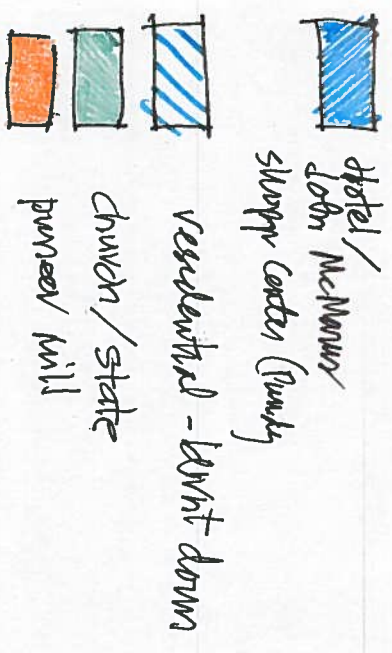 Hotel/
John McManus
shopp center (
residential - burnt down
church/state
pioneer mill